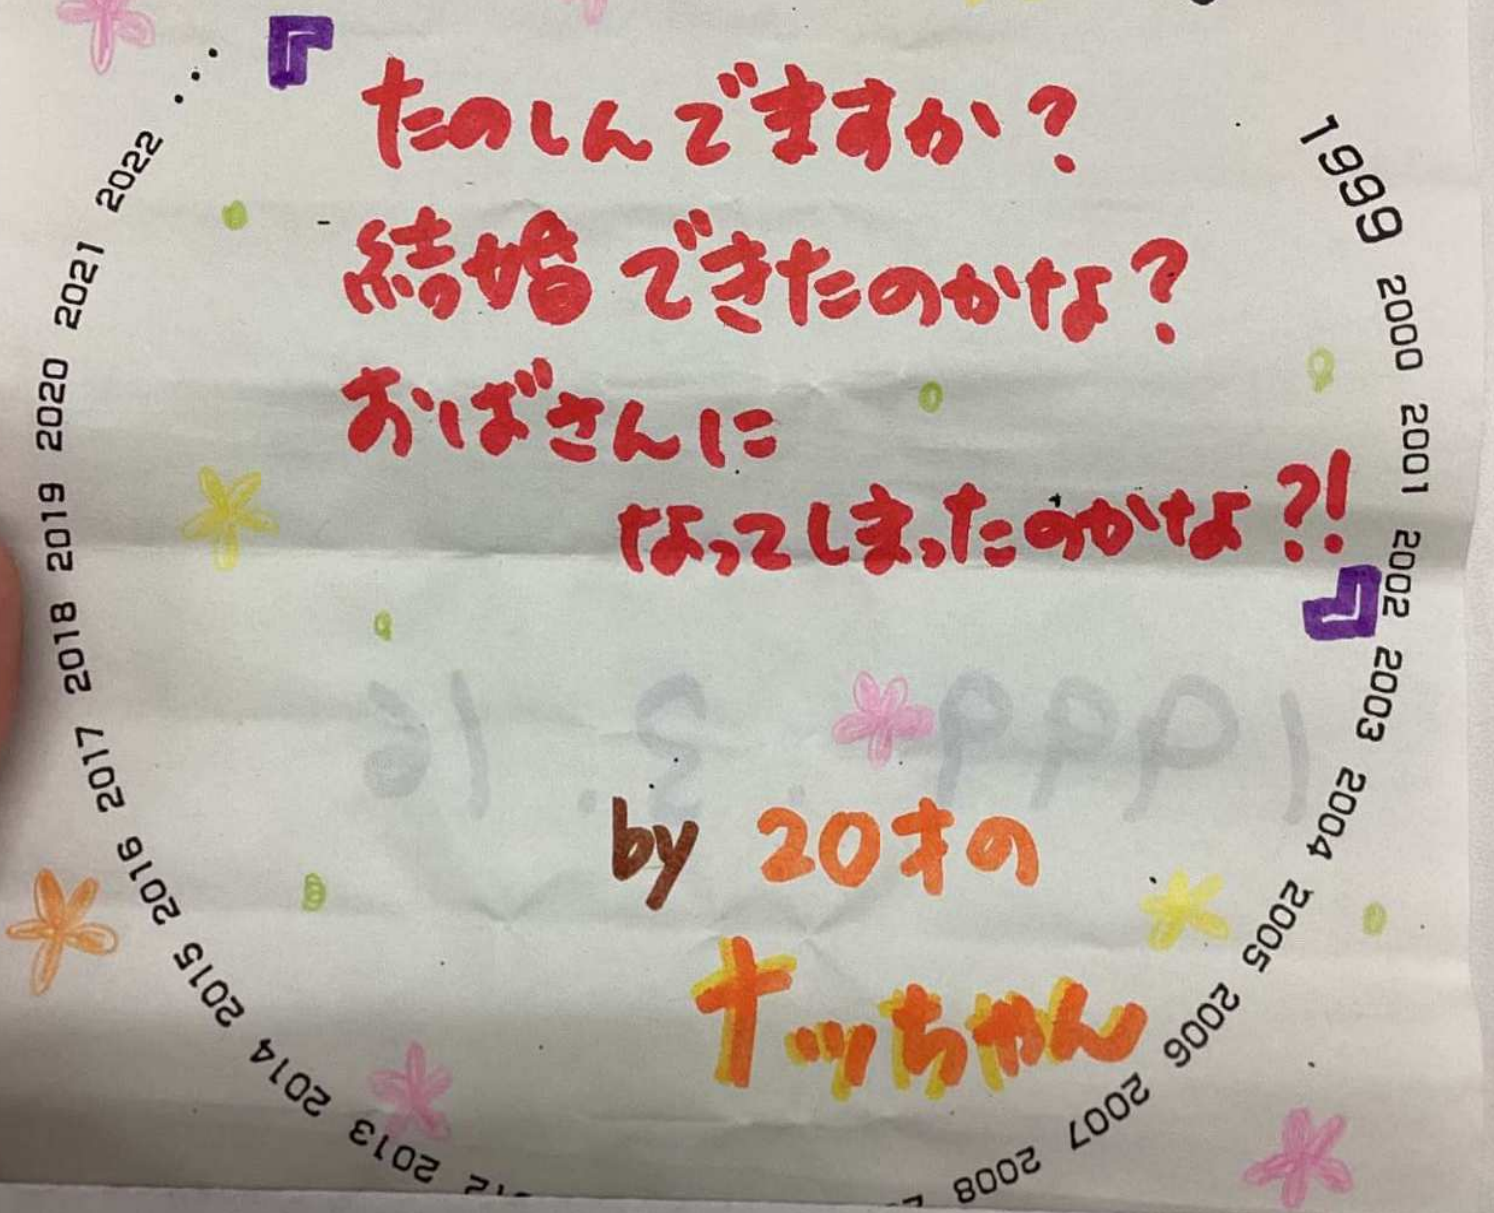 『たのしんでますか?
結婚できたのかな?
おばさんに
なってしまったのかな?!』
by 20才の
ナッちゃん
1999 2000 2001 2002 2003 2004 2005 2006 2007 2008
2013 2014 2015 2016 2017 2018 2019 2020 2021 2022 ...
1999.3.16